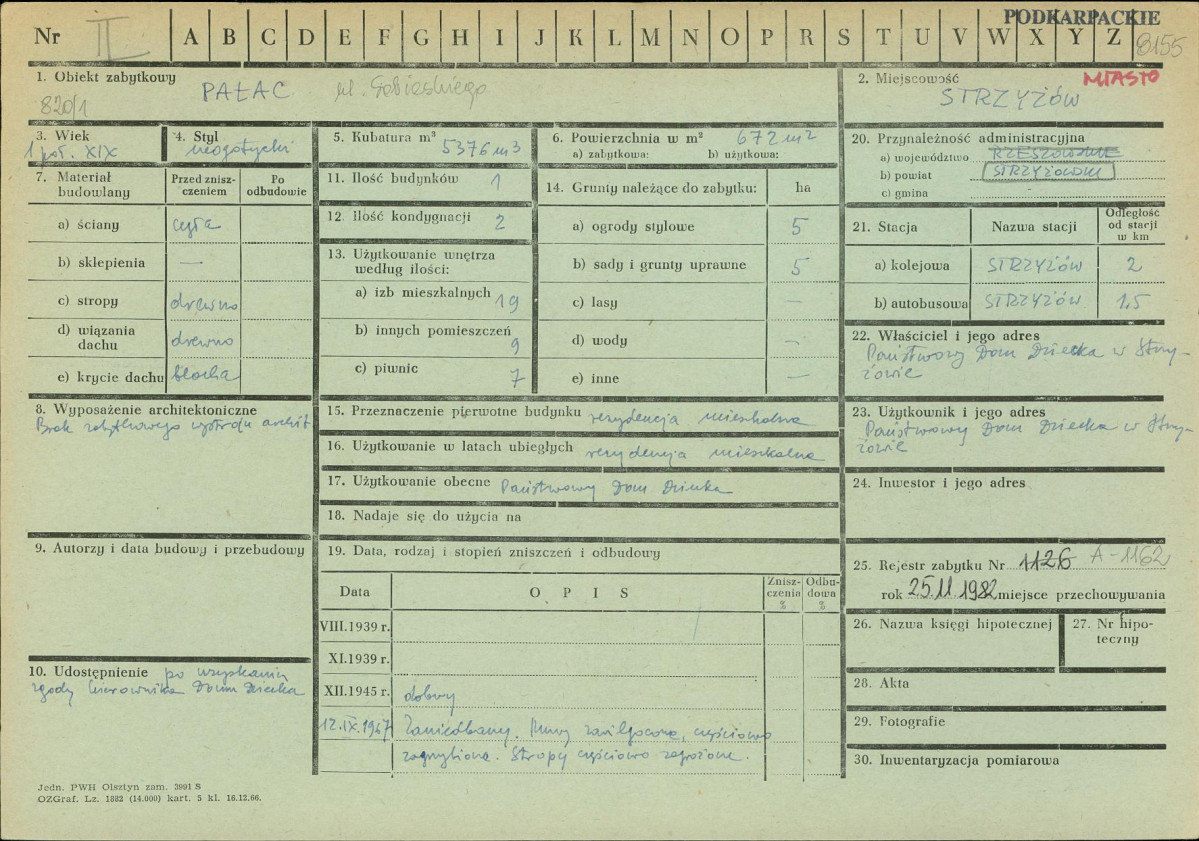 PODKARPACKIE
Nr II A B C D E F G H I J K L M N O P R S T U V W X Y Z 8155
1. Obiekt zabytkowy PAŁAC ul. Sobieskiego
820/1
2. Miejscowość MIASTO
STRZYŻÓW
3. Wiek
1 poł. XIX
4. Styl
neogotycki
5. Kubatura m³ 5376 m3
6. Powierzchnia w m² 672 m2
a) zabytkowa: b) użytkowa:
7. Materiał budowlany
Przed zniszczeniem
Po odbudowie
a) ściany cegła
b) sklepienia —
c) stropy drewno
d) wiązania dachu drewno
e) krycie dachu blacha
11. Ilość budynków 1
12. Ilość kondygnacji 2
13. Użytkowanie wnętrza
według ilości:
a) izb mieszkalnych 19
b) innych pomieszczeń
9
c) piwnic 7
14. Grunty należące do zabytku: ha
a) ogrody stylowe 5
b) sady i grunty uprawne 5
c) lasy —
d) wody —
e) inne —
20. Przynależność administracyjna
a) województwo RZESZOWSKIE
b) powiat STRZYŻOWSKI
c) gmina -
21. Stacja Nazwa stacji Odległość od stacji w km
a) kolejowa STRZYŻÓW 2
b) autobusowa STRZYŻÓW 1,5
22. Właściciel i jego adres
Państwowy Dom Dziecka w Strzy-
żowie
23. Użytkownik i jego adres
Państwowy Dom Dziecka w Strzy-
żowie
24. Inwestor i jego adres
8. Wyposażenie architektoniczne
Brak zabytkowego wystroju archit.
15. Przeznaczenie pierwotne budynku rezydencja mieszkalna
16. Użytkowanie w latach ubiegłych rezydencja mieszkalna
17. Użytkowanie obecne Państwowy Dom Dziecka
18. Nadaje się do użycia na
9. Autorzy i data budowy i przebudowy
19. Data, rodzaj i stopień zniszczeń i odbudowy
Data O P I S Zniszczenia % Odbudowa %
VIII.1939 r.
XI.1939 r.
XII.1945 r. dobry
12.IX.1967 Zaniedbany. Mury zawilgocone, częściowo
zagrzybione. Stropy częściowo zagrożone.
10. Udostępnienie po uzyskaniu
zgody kierownika Domu Dziecka
25. Rejestr zabytku Nr 1126 A-1162
rok 25.II.1982 miejsce przechowywania
26. Nazwa księgi hipotecznej
27. Nr hipo-
teczny
28. Akta
29. Fotografie
30. Inwentaryzacja pomiarowa
Jedn. PWH Olsztyn zam. 3991 S
OZGraf. Lz. 1882 (14.000) kart. 5 kl. 16.12.66.